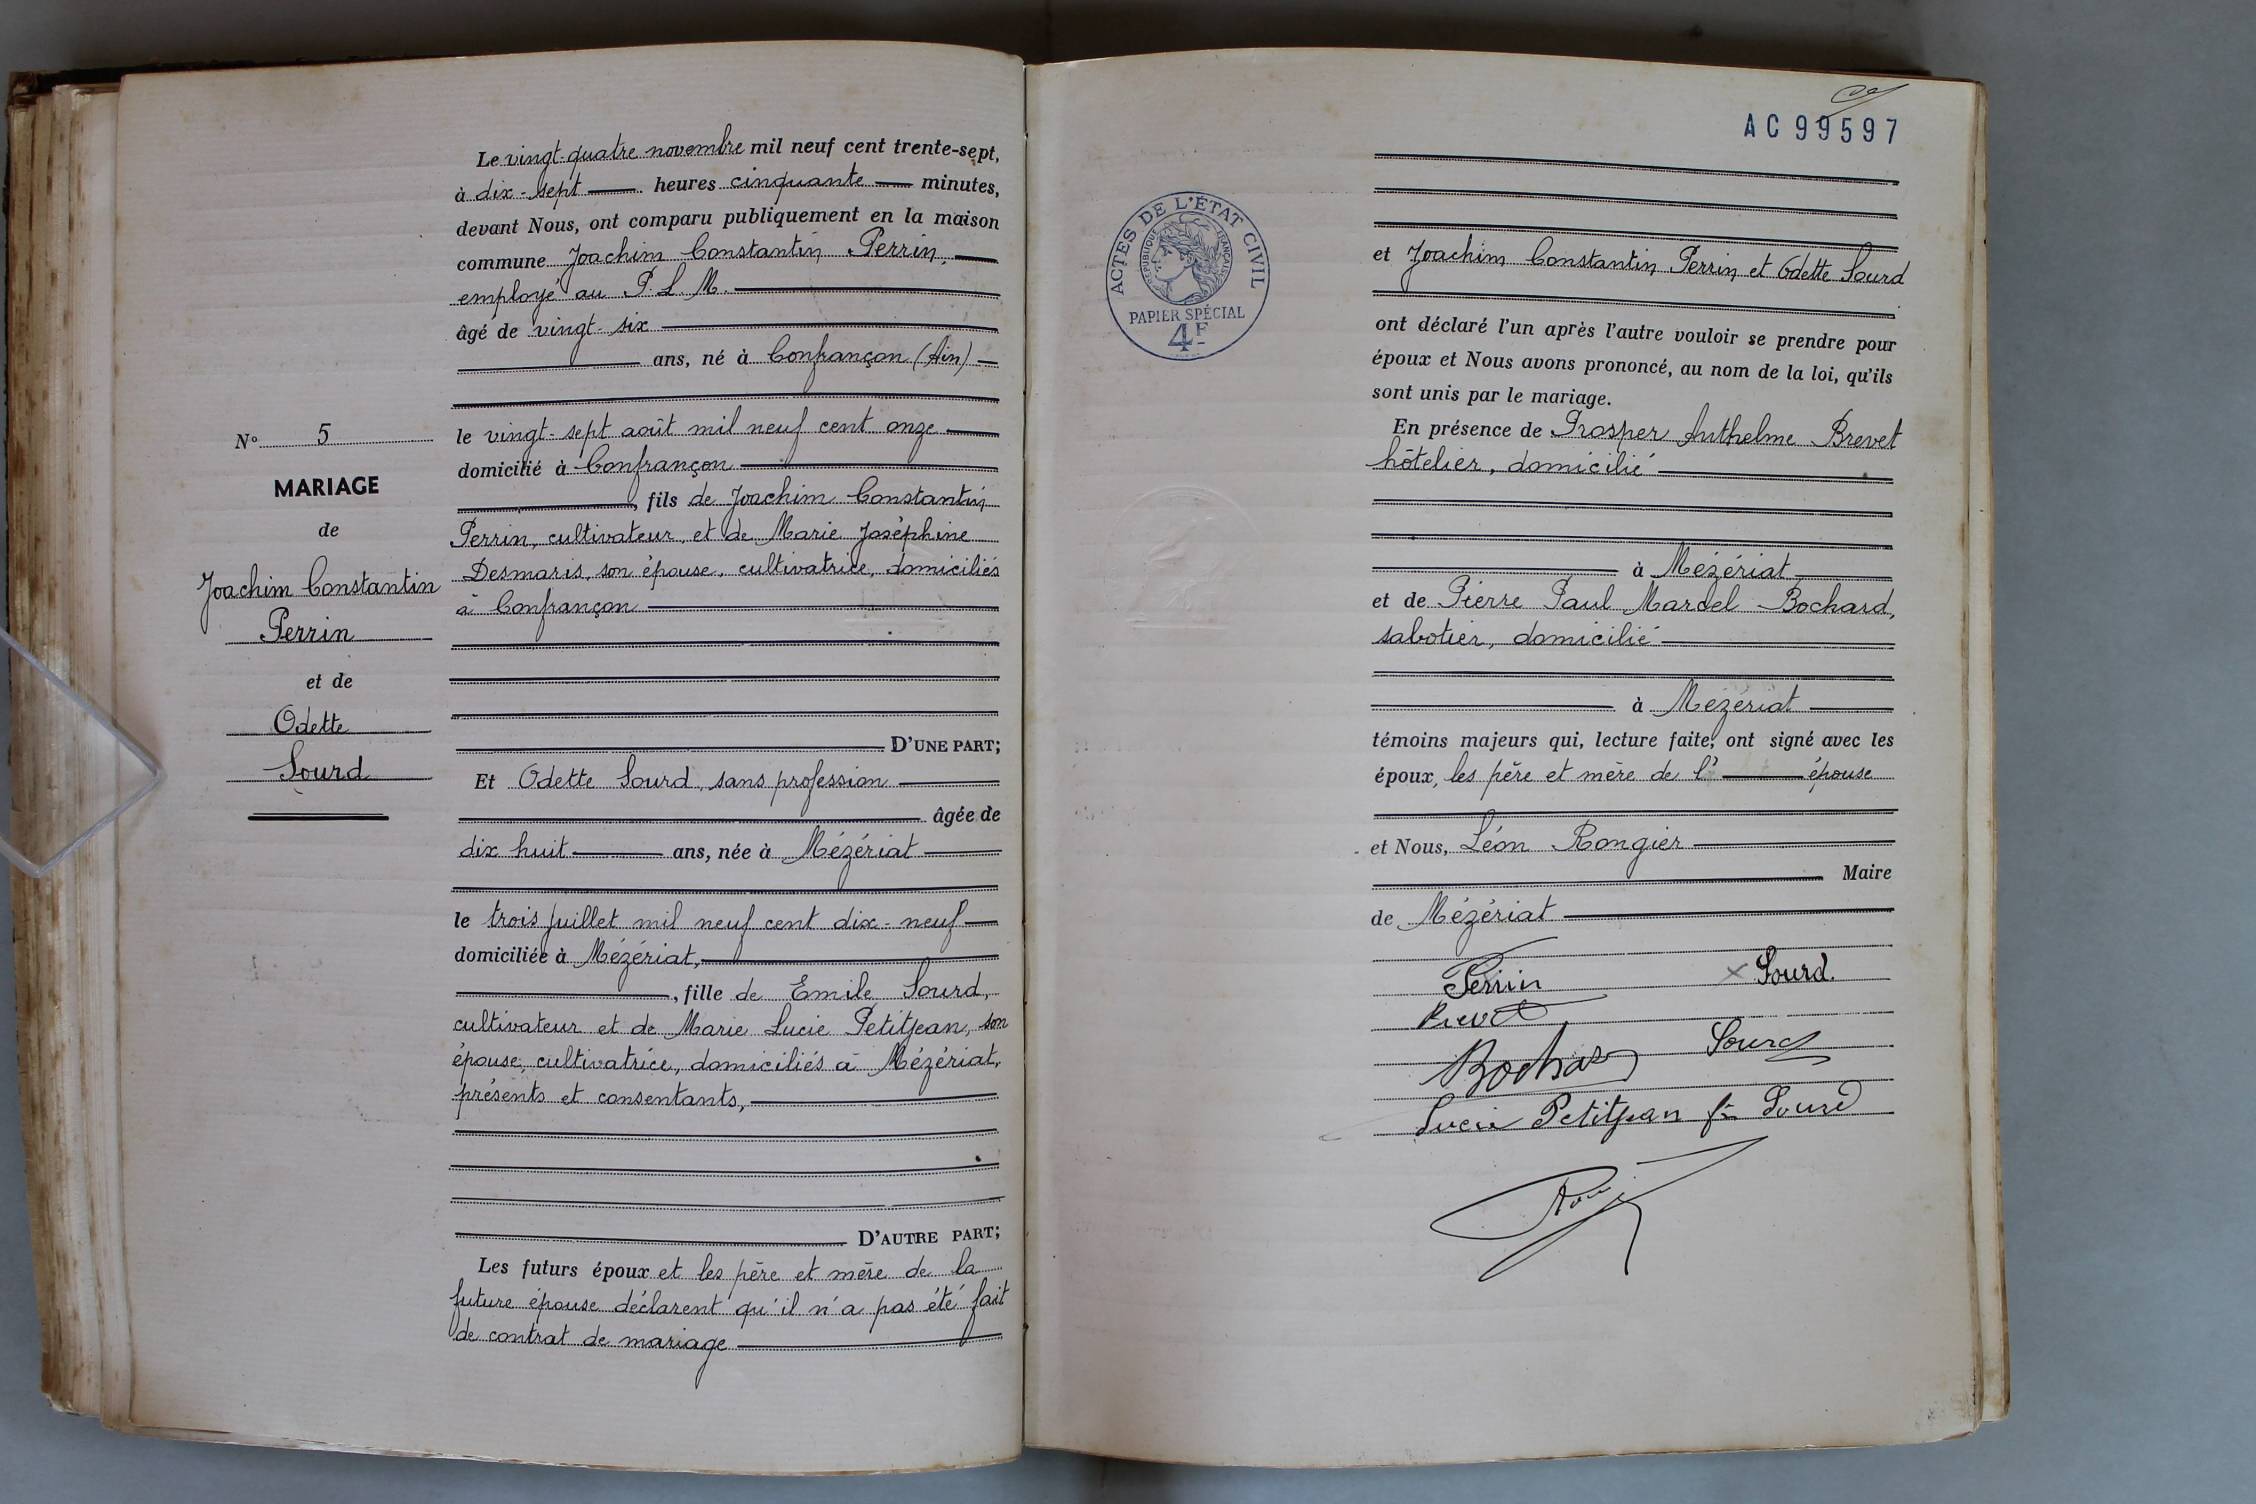 Le vingt-quatre novembre mil neuf cent trente-sept,
à dix-sept heures cinquante minutes,
devant Nous, ont comparu publiquement en la maison
commune Joachim Constantin Perrin,
employé au P. L. M.
âgé de vingt-six
ans, né à Confrançon (Ain)
le vingt-sept août mil neuf cent onze
domicilié à Confrançon
, fils de Joachim Constantin
Perrin, cultivateur, et de Marie Joséphine
Desmaris, son épouse, cultivatrice, domiciliés
à Confrançon
D'UNE PART;
Et Odette Sourd, sans profession
âgée de
dix huit ans, née à Mézériat
le trois juillet mil neuf cent dix-neuf
domiciliée à Mézériat,
, fille de Emile Sourd,
cultivateur et de Marie Lucie Petitjean, son
épouse, cultivatrice, domiciliés à Mézériat,
présents et consentants,
D'AUTRE PART;
Les futurs époux et les père et mère de la
future épouse déclarent qu'il n'a pas été fait
de contrat de mariage
N° 5
MARIAGE
de
Joachim Constantin
Perrin
et de
Odette
Sourd
AC 99597
ACTES DE L'ÉTAT CIVIL
RÉPUBLIQUE FRANÇAISE
PAPIER SPÉCIAL
4F
et Joachim Constantin Perrin et Odette Sourd
ont déclaré l'un après l'autre vouloir se prendre pour
époux et Nous avons prononcé, au nom de la loi, qu'ils
sont unis par le mariage.
En présence de Prosper Anthelme Brevet
hôtelier, domicilié
à Mézériat
et de Pierre Paul Marcel Bochard,
sabotier, domicilié
à Mézériat
témoins majeurs qui, lecture faite, ont signé avec les
époux, les père et mère de l' épouse
et Nous, Léon Rongier
Maire
de Mézériat
Perrin × Sourd.
Brevet
Bochard Sourd
Lucie Petitjean fe Sourd